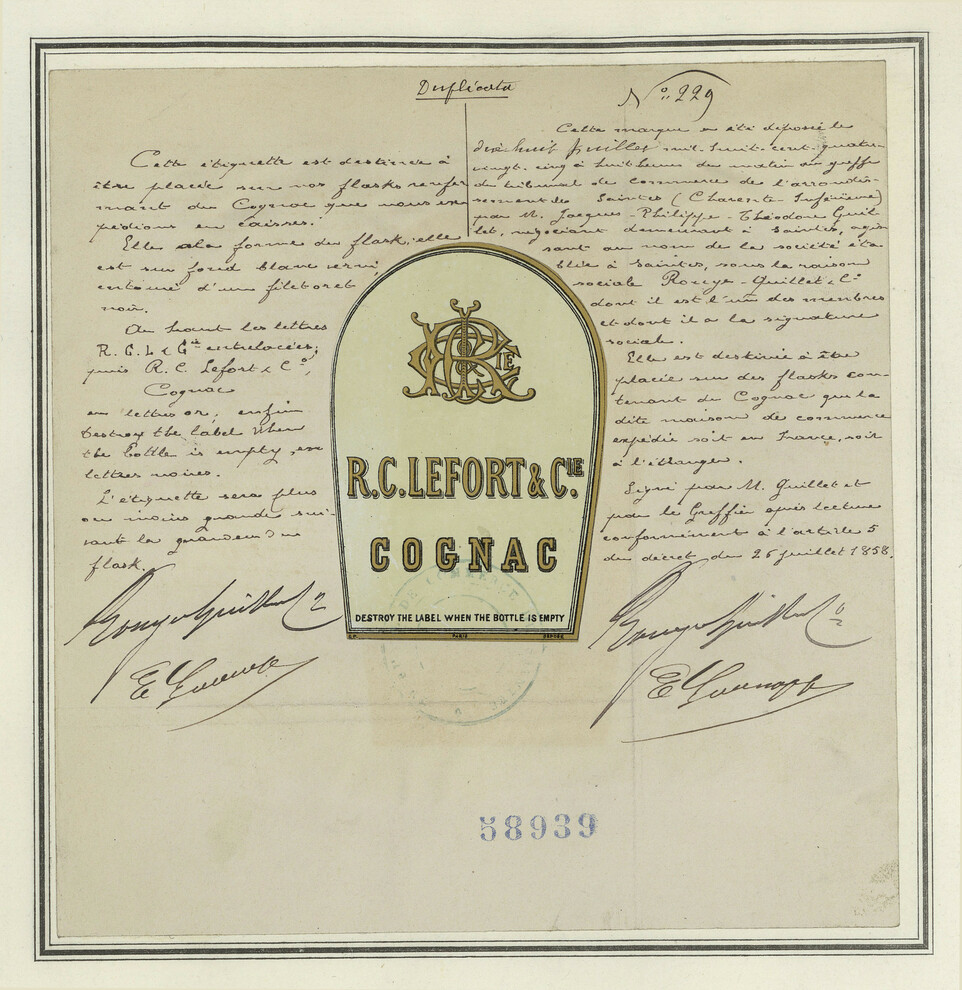 Duplicata
Nº 229
Cette étiquette est destinée à
être placée sur nos flasks renfer
mant du Cognac que nous ex
pédions en caisses.
Elle a la forme du flask, elle
est sur fond blanc verni
entouré d'un filet or et
noir.
Au haut les lettres
R. C. L & Cie entrelacées;
puis R. C. Lefort & Cº,
Cognac
en lettres or, enfin
Destroy the label when
the bottle is empty, en
lettres noires.
L'étiquette sera plus
ou moins grande sui-
vant la grandeur du
flask.
Rouyer Guillet & Cº
Cette marque a été déposée le
dix huit Juillet mil huit cent quatre-
vingt-cinq à huit heures du matin au greffe
du tribunal de commerce de l'arrondis-
sement de Saintes (Charente-Inférieure)
par M. Jacques-Philippe-Théodore Guil
let, négociant demeurant à Saintes, agis
sant au nom de la société éta
blie à Saintes, sous la raison
sociale Rouyer-Guillet & Cº
dont il est l'un des membres
et dont il a la signature
sociale.
Elle est destinée à être
placée sur des flasks con-
tenant du Cognac que la
dite maison de commerce
expédie soit en France, soit
à l'étranger.
Signé par M. Guillet et
par le Greffier après lecture
conformément à l'article 5
du décret du 26 juillet 1858.
Rouyer Guillet & Cº
RCL&CIE
R.C.LEFORT & CIE.
COGNAC
DESTROY THE LABEL WHEN THE BOTTLE IS EMPTY
PARIS
DE COMMERCE
58939